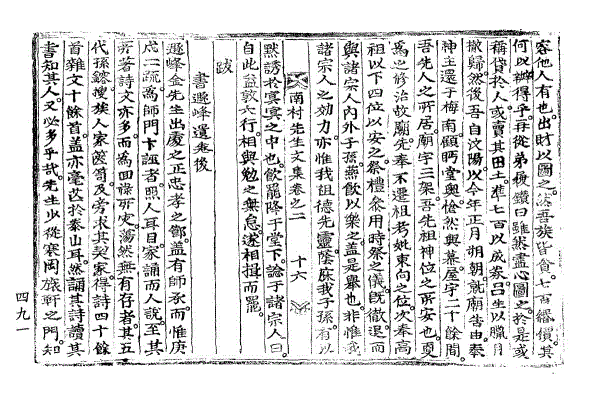 容他人有也出財以圖之然吾族皆貧七百緡價其
何以辦得乎再從弟 鑽曰雖然盡心圖之於是或
稱貸於人或賣其田土準七百以成券呂生以臘月
撤歸然後吾自汶陽以今年正月朔朝就廟告由奉
神主還于梅南顧眄堂奧愴然與 屋宇二十餘間
吾先人之所居廟宇三架吾先祖神位之所安也更
爲之修治故廟先奉不遷祖考妣東向之位次奉高
祖以下四位以安之祭禮參用時祭之儀旣徹退而
與諸宗人內外子孫燕飮以樂之盖是擧也非惟我
諸宗人之効力亦惟我祖德先靈蔭庥我子孫有以
南村先生文集卷之二 十六
默誘於冥冥之中也飮罷降于堂下諭于諸宗人曰
自此益敦六行相與勉之無怠遂相揖而罷
跋
書遯峰遺 後
遯峰金先生出慶之正忠孝之鄕盖有師承而惟庚
戊二疏爲師門卞誣者照人耳目家誦而人說至其
所著詩文亦多而爲回祿所灾蕩然無有存者其五
代孫 搜族人家篋笥及旁求其交家得詩四十餘
首雜文十餘首盖亦毫芒於泰山耳然誦其詩讀其
書知其人又必多乎哉先生少從寒岡旅軒之門知
四九一